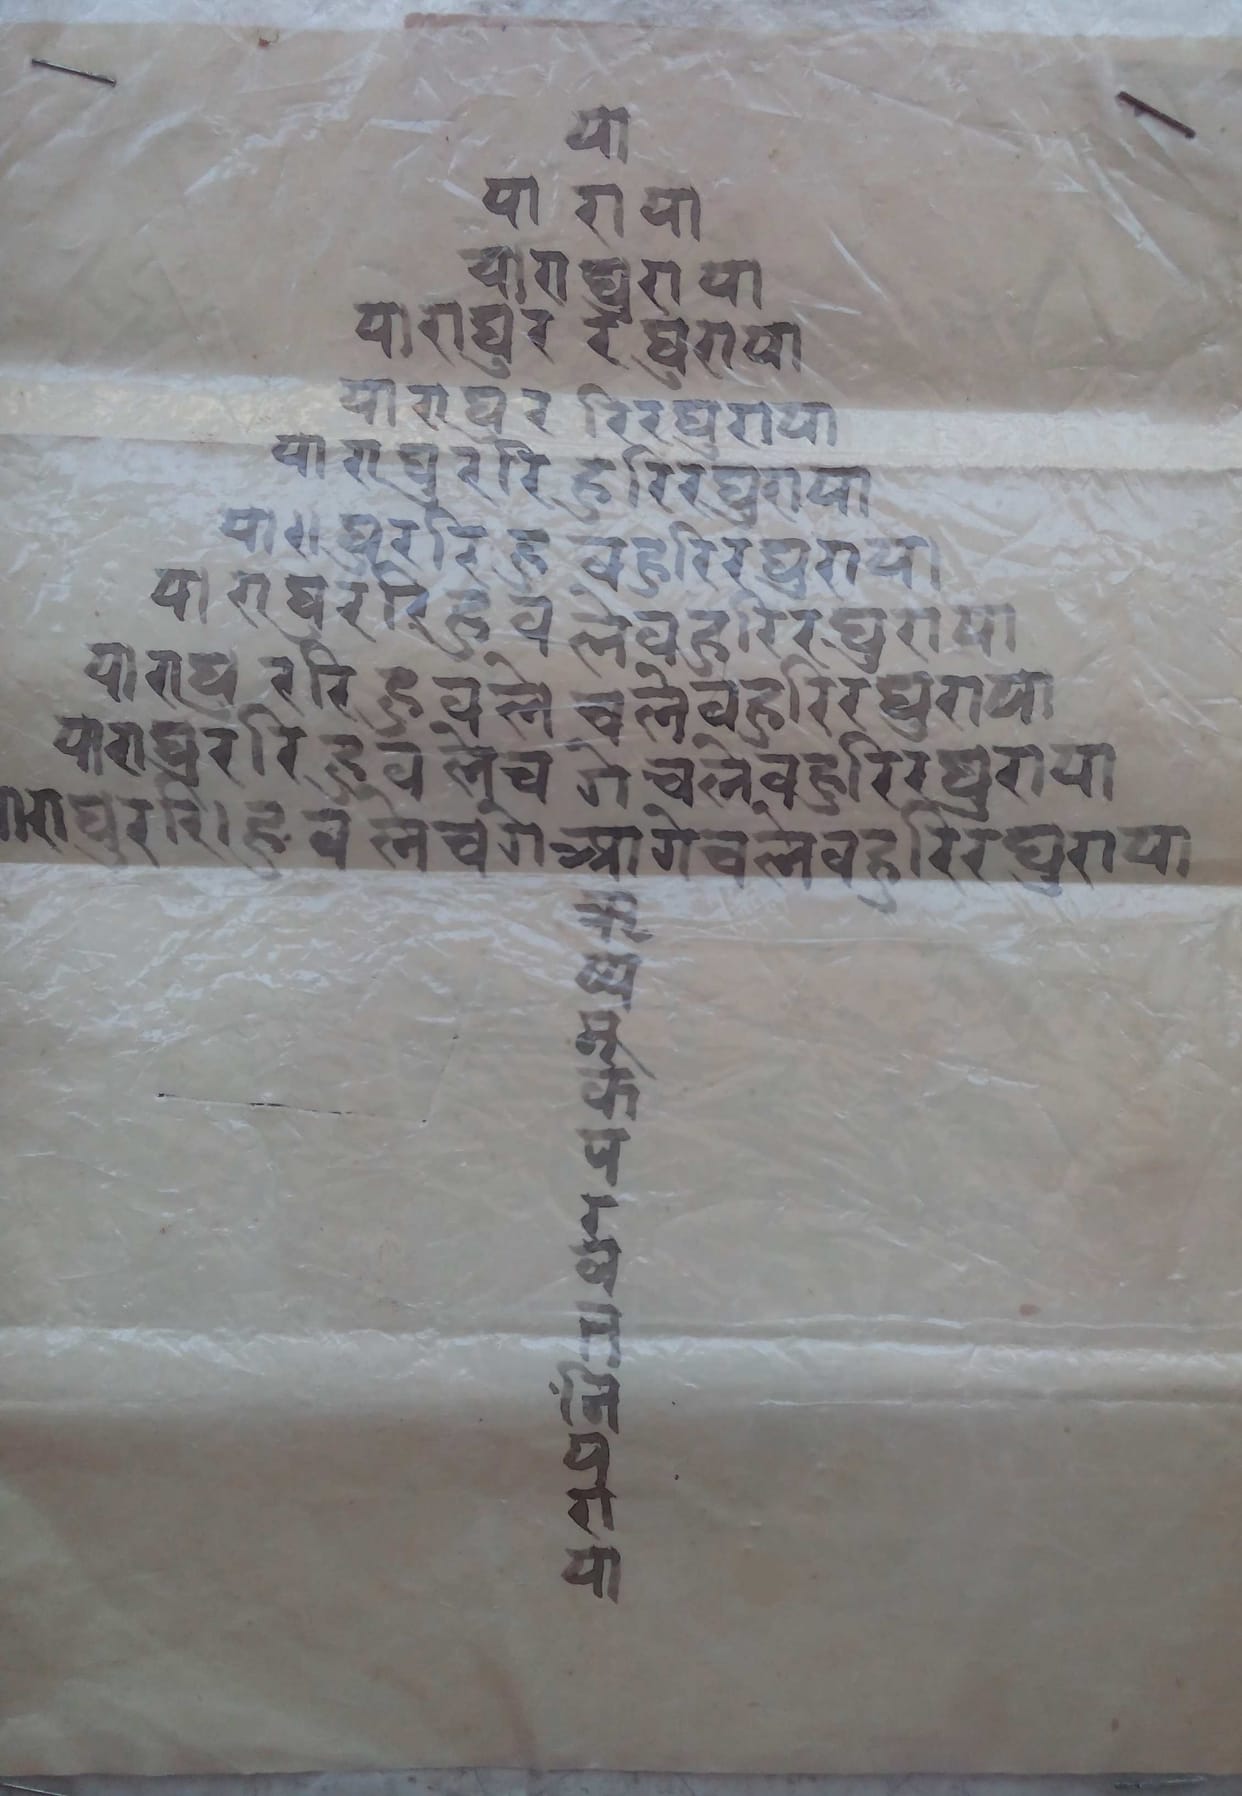 या
या रा या
या रा घु रा या
या रा घु र र घु रा या
या रा घु र रि र घु रा या
या रा घु र रि हु रि र घु रा या
या रा घु र रि हु व हु रि र घु रा या
या रा घु र रि हु व ले व हु रि र घु रा या
या रा घु र रि हु व ले च ले व हु रि र घु रा या
या रा घु र रि हु व ले च गे च ले व हु रि र घु रा या
या रा घु र रि हु व ले च गे आ गे च ले व हु रि र घु रा या
रि
ष्य
मू
क
प
र्
व
त
नि
य
रा
या